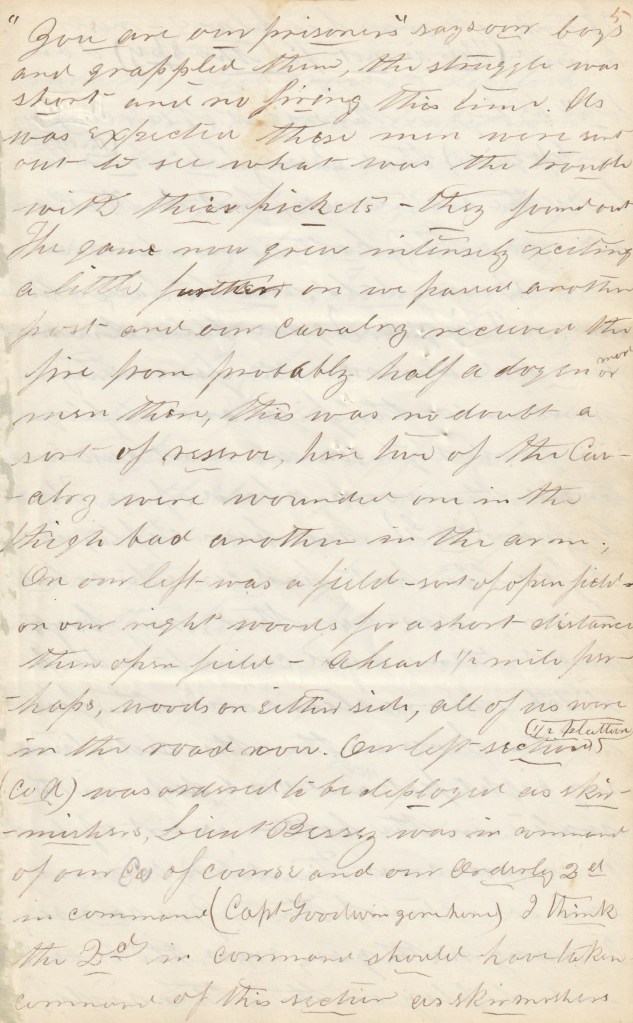 5
"You are our prisoners" says our boys
and grappled them, the struggle was
short and no firing this time. As
was expected these men were sent
out to see what was the trouble
with their pickets - they found out
The game now grew intensely exciting
a little further on we passed another
post and our Cavalry recieved the
fire from probably half a dozen or more
men then, this was no doubt a
sort of reserve, here two of the Cav-
-alry were wounded one in the
thigh bad another in the arm.
On our left was a field - sort of open field -
on our right woods for a short distance
then open field - ahead 1/2 mile per-
-haps, woods on either side, all of us were
in the road now. Our left section (1/2 platoon)
(Co A) was ordered to be deployed as skir-
-mishers, Lieut Bessey was in command
of our Co of course and our Orderly 2d
in command (Capt Goodwin gone home) I think
the 2d in command should have taken
command of this section as skirmishers